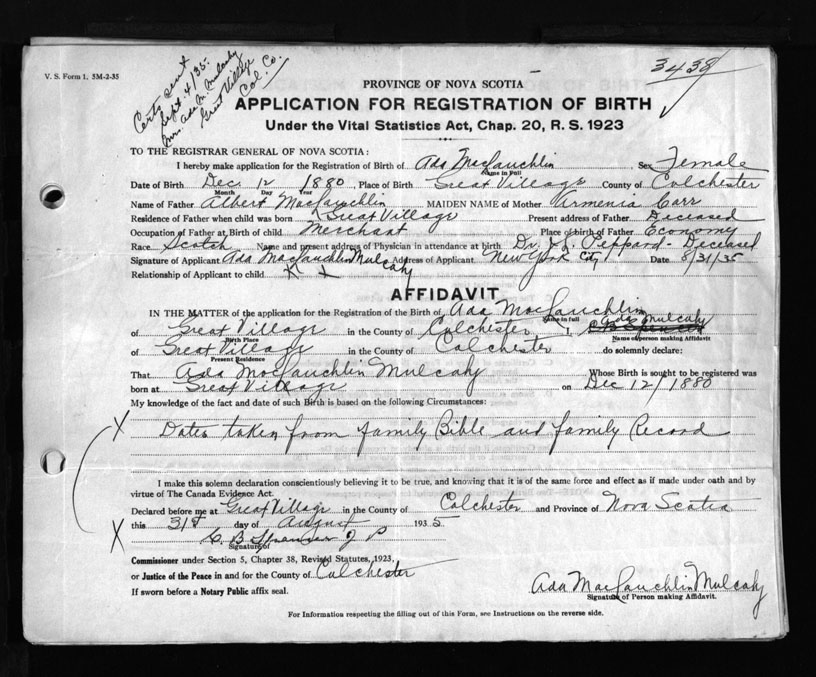 V. S. Form 1, 5M-2-35
Certs sent
Sept. 4/35.
Mrs Ada M. Mulcahy
Great Village
Col. Co.
3438
PROVINCE OF NOVA SCOTIA
APPLICATION FOR REGISTRATION OF BIRTH
Under the Vital Statistics Act, Chap. 20, R. S. 1923
TO THE REGISTRAR GENERAL OF NOVA SCOTIA:
I hereby make application for the Registration of Birth of Ada MacLauchlin Sex Female
Name in Full
Date of Birth Dec 12 1880, Place of Birth Great Village County of Colchester
Month Day Year
Name of Father Albert MacLauchlin MAIDEN NAME of Mother Armenia Carr
Residence of Father when child was born Great Village Present address of Father Deceased
Occupation of Father at Birth of child Merchant Place of birth of Father Economy
Race Scotch Name and present address of Physician in attendance at birth Dr. J. J. Peppard - Deceased
Signature of Applicant Ada MacLauchlin Mulcahy Address of Applicant New York City Date 8/31/35
Relationship of Applicant to child X X
AFFIDAVIT
IN THE MATTER of the application for the Registration of Birth of Ada MacLauchlin
Name in full
of Great Village in the County of Colchester I, C B Spencer Ada Mulcahy
Birth Place Name of person making Affidavit
of Great Village in the County of Colchester do solemnly declare:
Present Residence
That Ada MacLauchlin Mulcahy Whose Birth is sought to be registered was
born at Great Village on Dec 12/1880
My knowledge of the fact and date of such Birth is based on the following Circumstances:
X Dates taken from family Bible and family Record
I make this solemn declaration conscientiously believing it to be true, and knowing that it is of the same force and effect as if made under oath and by
virtue of The Canada Evidence Act.
Declared before me at Great Village in the County of Colchester and Province of Nova Scotia
this 31st day of August 1935
X C. B. Spencer J P
Signature of
Commissioner under Section 5, Chapter 38, Revised Statutes, 1923,
or Justice of the Peace in and for the County of Colchester
If sworn before a Notary Public affix seal.
Ada MacLauchlin Mulcahy
Signature of Person making Affidavit.
For Information respecting the filling out of this Form, see Instructions on the reverse side.